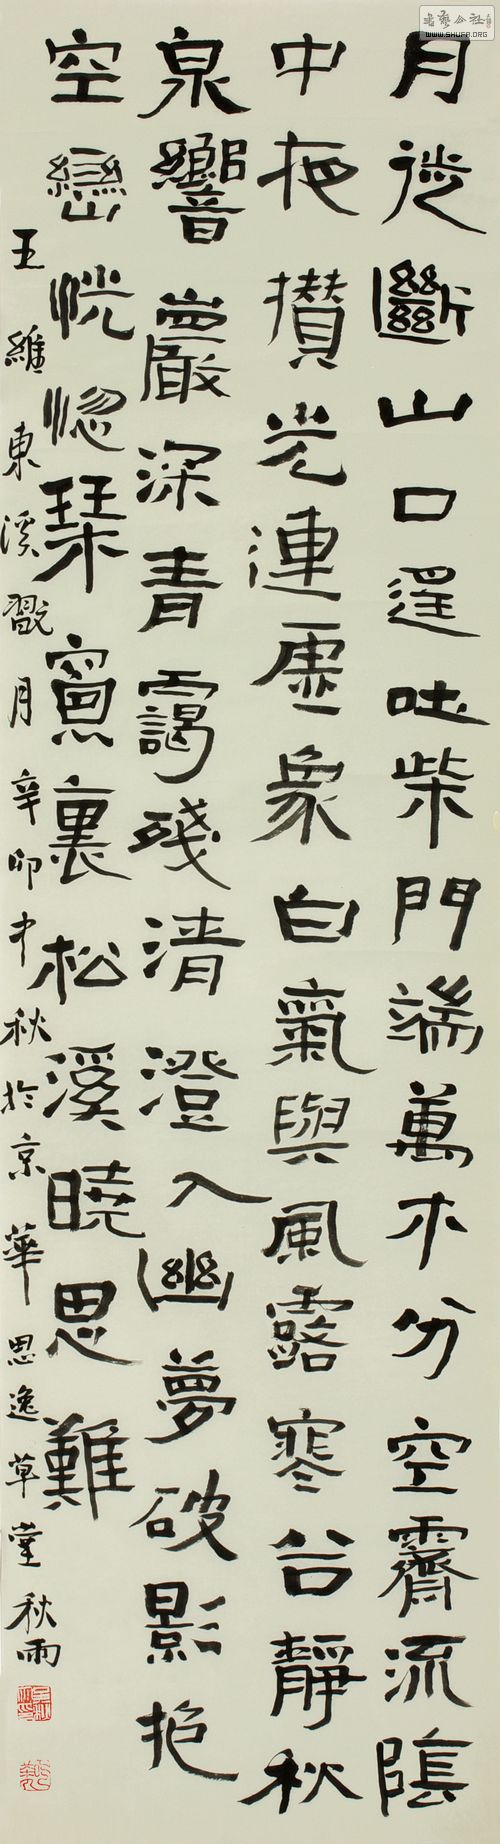 書藝公社
WWW.SHUFA.ORG
月從斷山口遙吐柴門端萬木分空霽流陰
中夜攢光連虛象白氣與風露寒谷靜秋
泉響巖深青靄殘清澄入幽夢破影抱
空巒恍惚琴窗裏松溪曉思難
王維東溪翫月辛卯中秋於京華思逸草堂秋雨